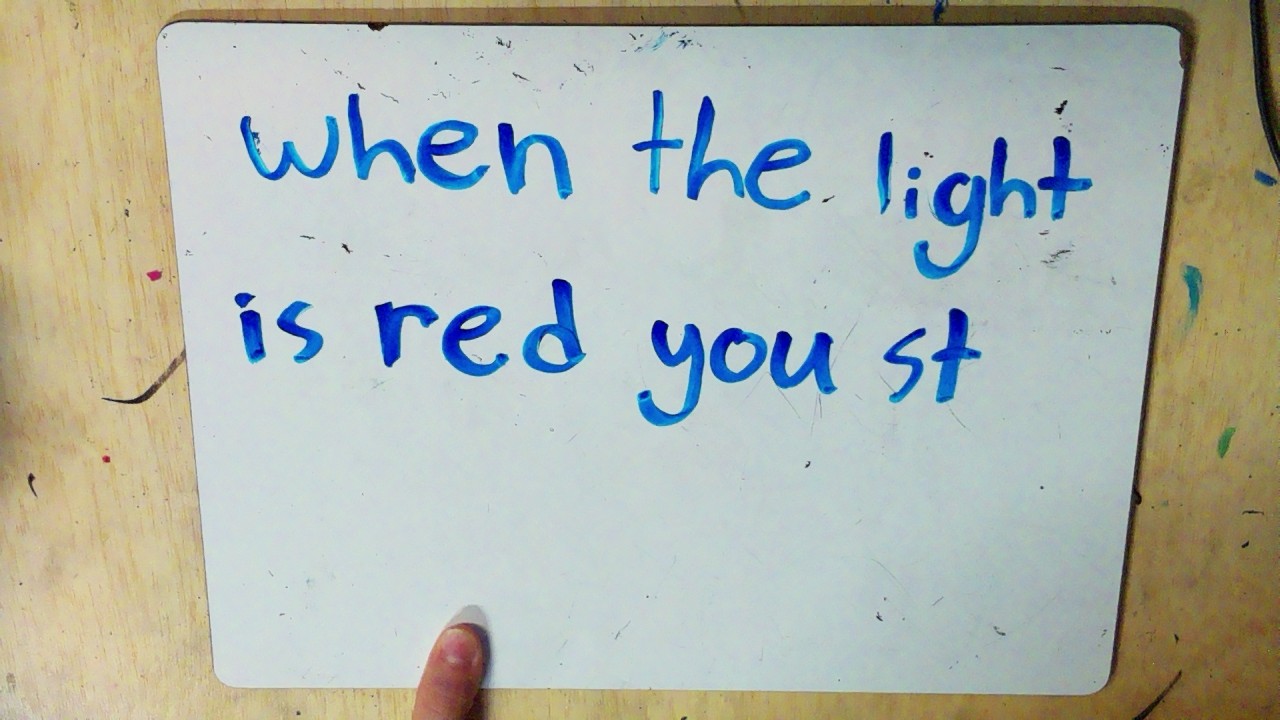 when the light
is red you st